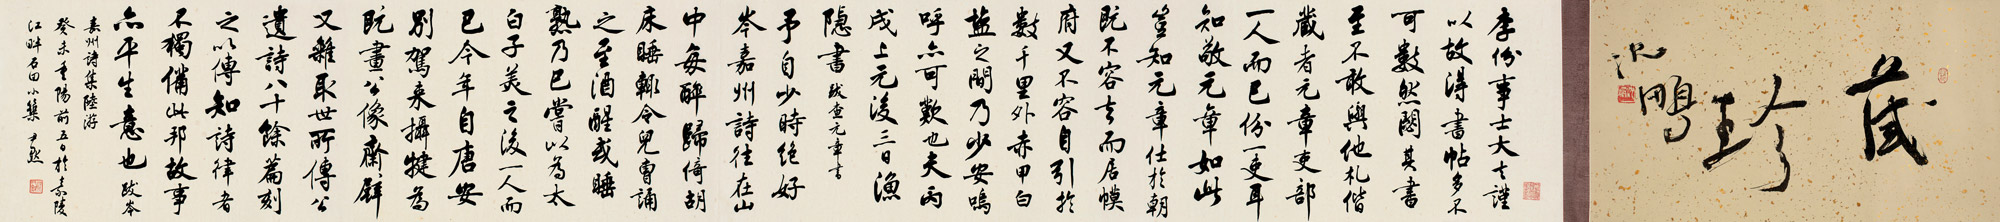 藏珍
沈鵬
李份事士大夫謹
以故得書帖多不
可數然閟其書
至不敢與他札偕
藏者元章吏部
一人而已份一吏耳
知敬元章如此
豈知元章仕於朝
既不容去而居幙
府又不容自引於
數千里外赤甲白
鹽之間乃少安嗚
呼亦可歎也夫丙
戌上元後三日漁
隱書 跋查元章書
予自少時絕好
岑嘉州詩往在山
中每醉歸倚胡
床睡輒令兒曹誦
之至酒醒或睡
熟乃已嘗以為太
白子美之後一人而
已今年自唐安
別駕來攝犍為
既畫公像齋壁
又雜取世所傳公
遺詩八十餘篇刻
之以傳知詩律者
不獨備此邦故事
亦平生意也 跋岑
嘉州詩集陸游
癸未重陽前五日於嘉陵
江畔石田小築